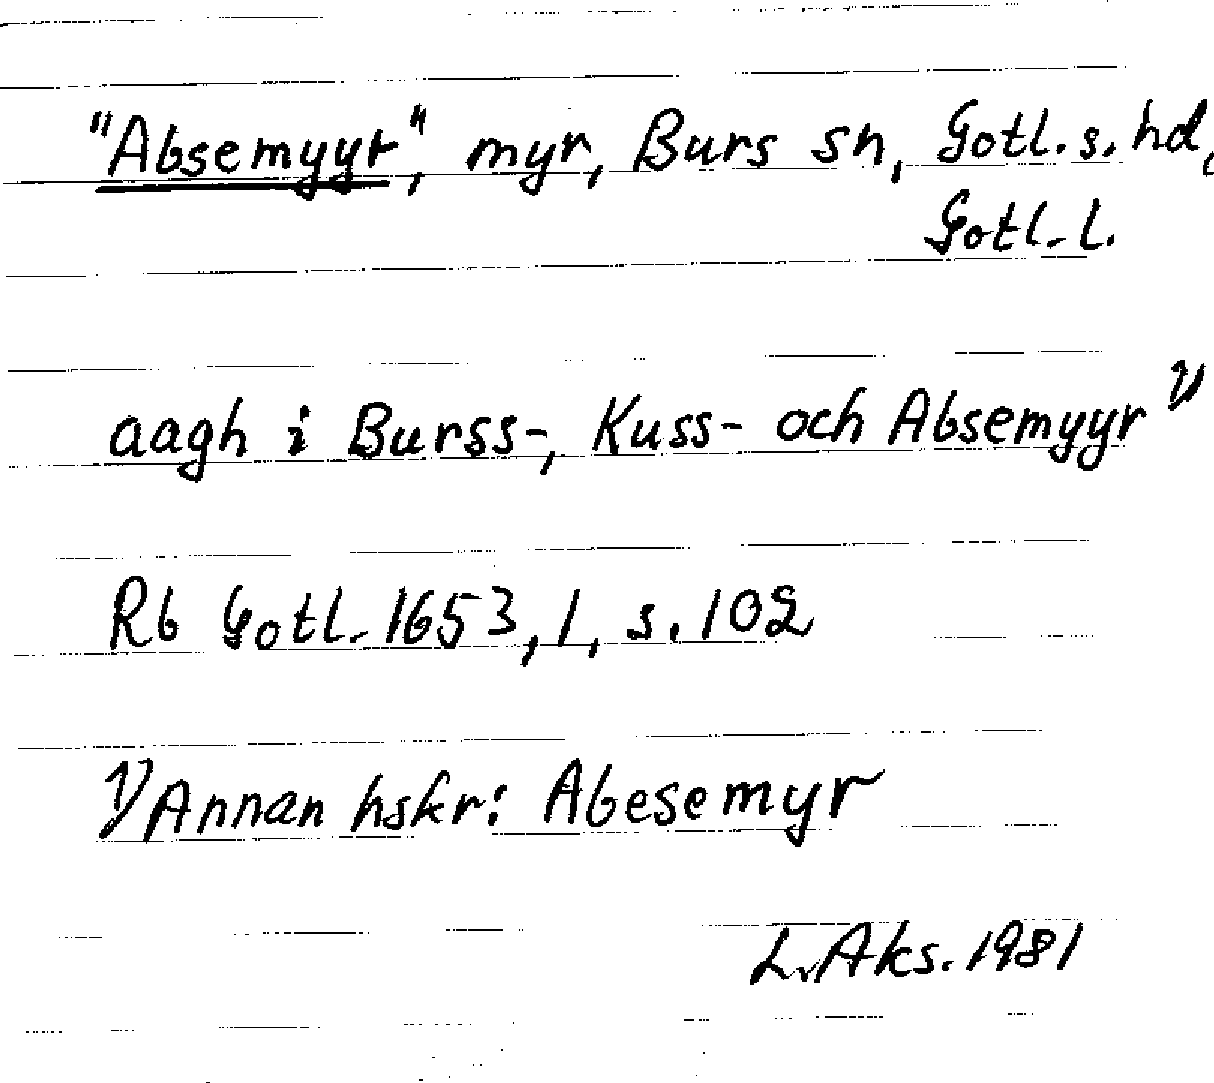 "Absemyyr", myr, Burs sn, Gotl. s. hd,
Gotl. l.
aagh i Burss-, Kuss- och Absemyyr 1)
Rb Gotl. 1653, 1, s. 102
1) Annan hskr: Abesemyr
L. Aks. 1981